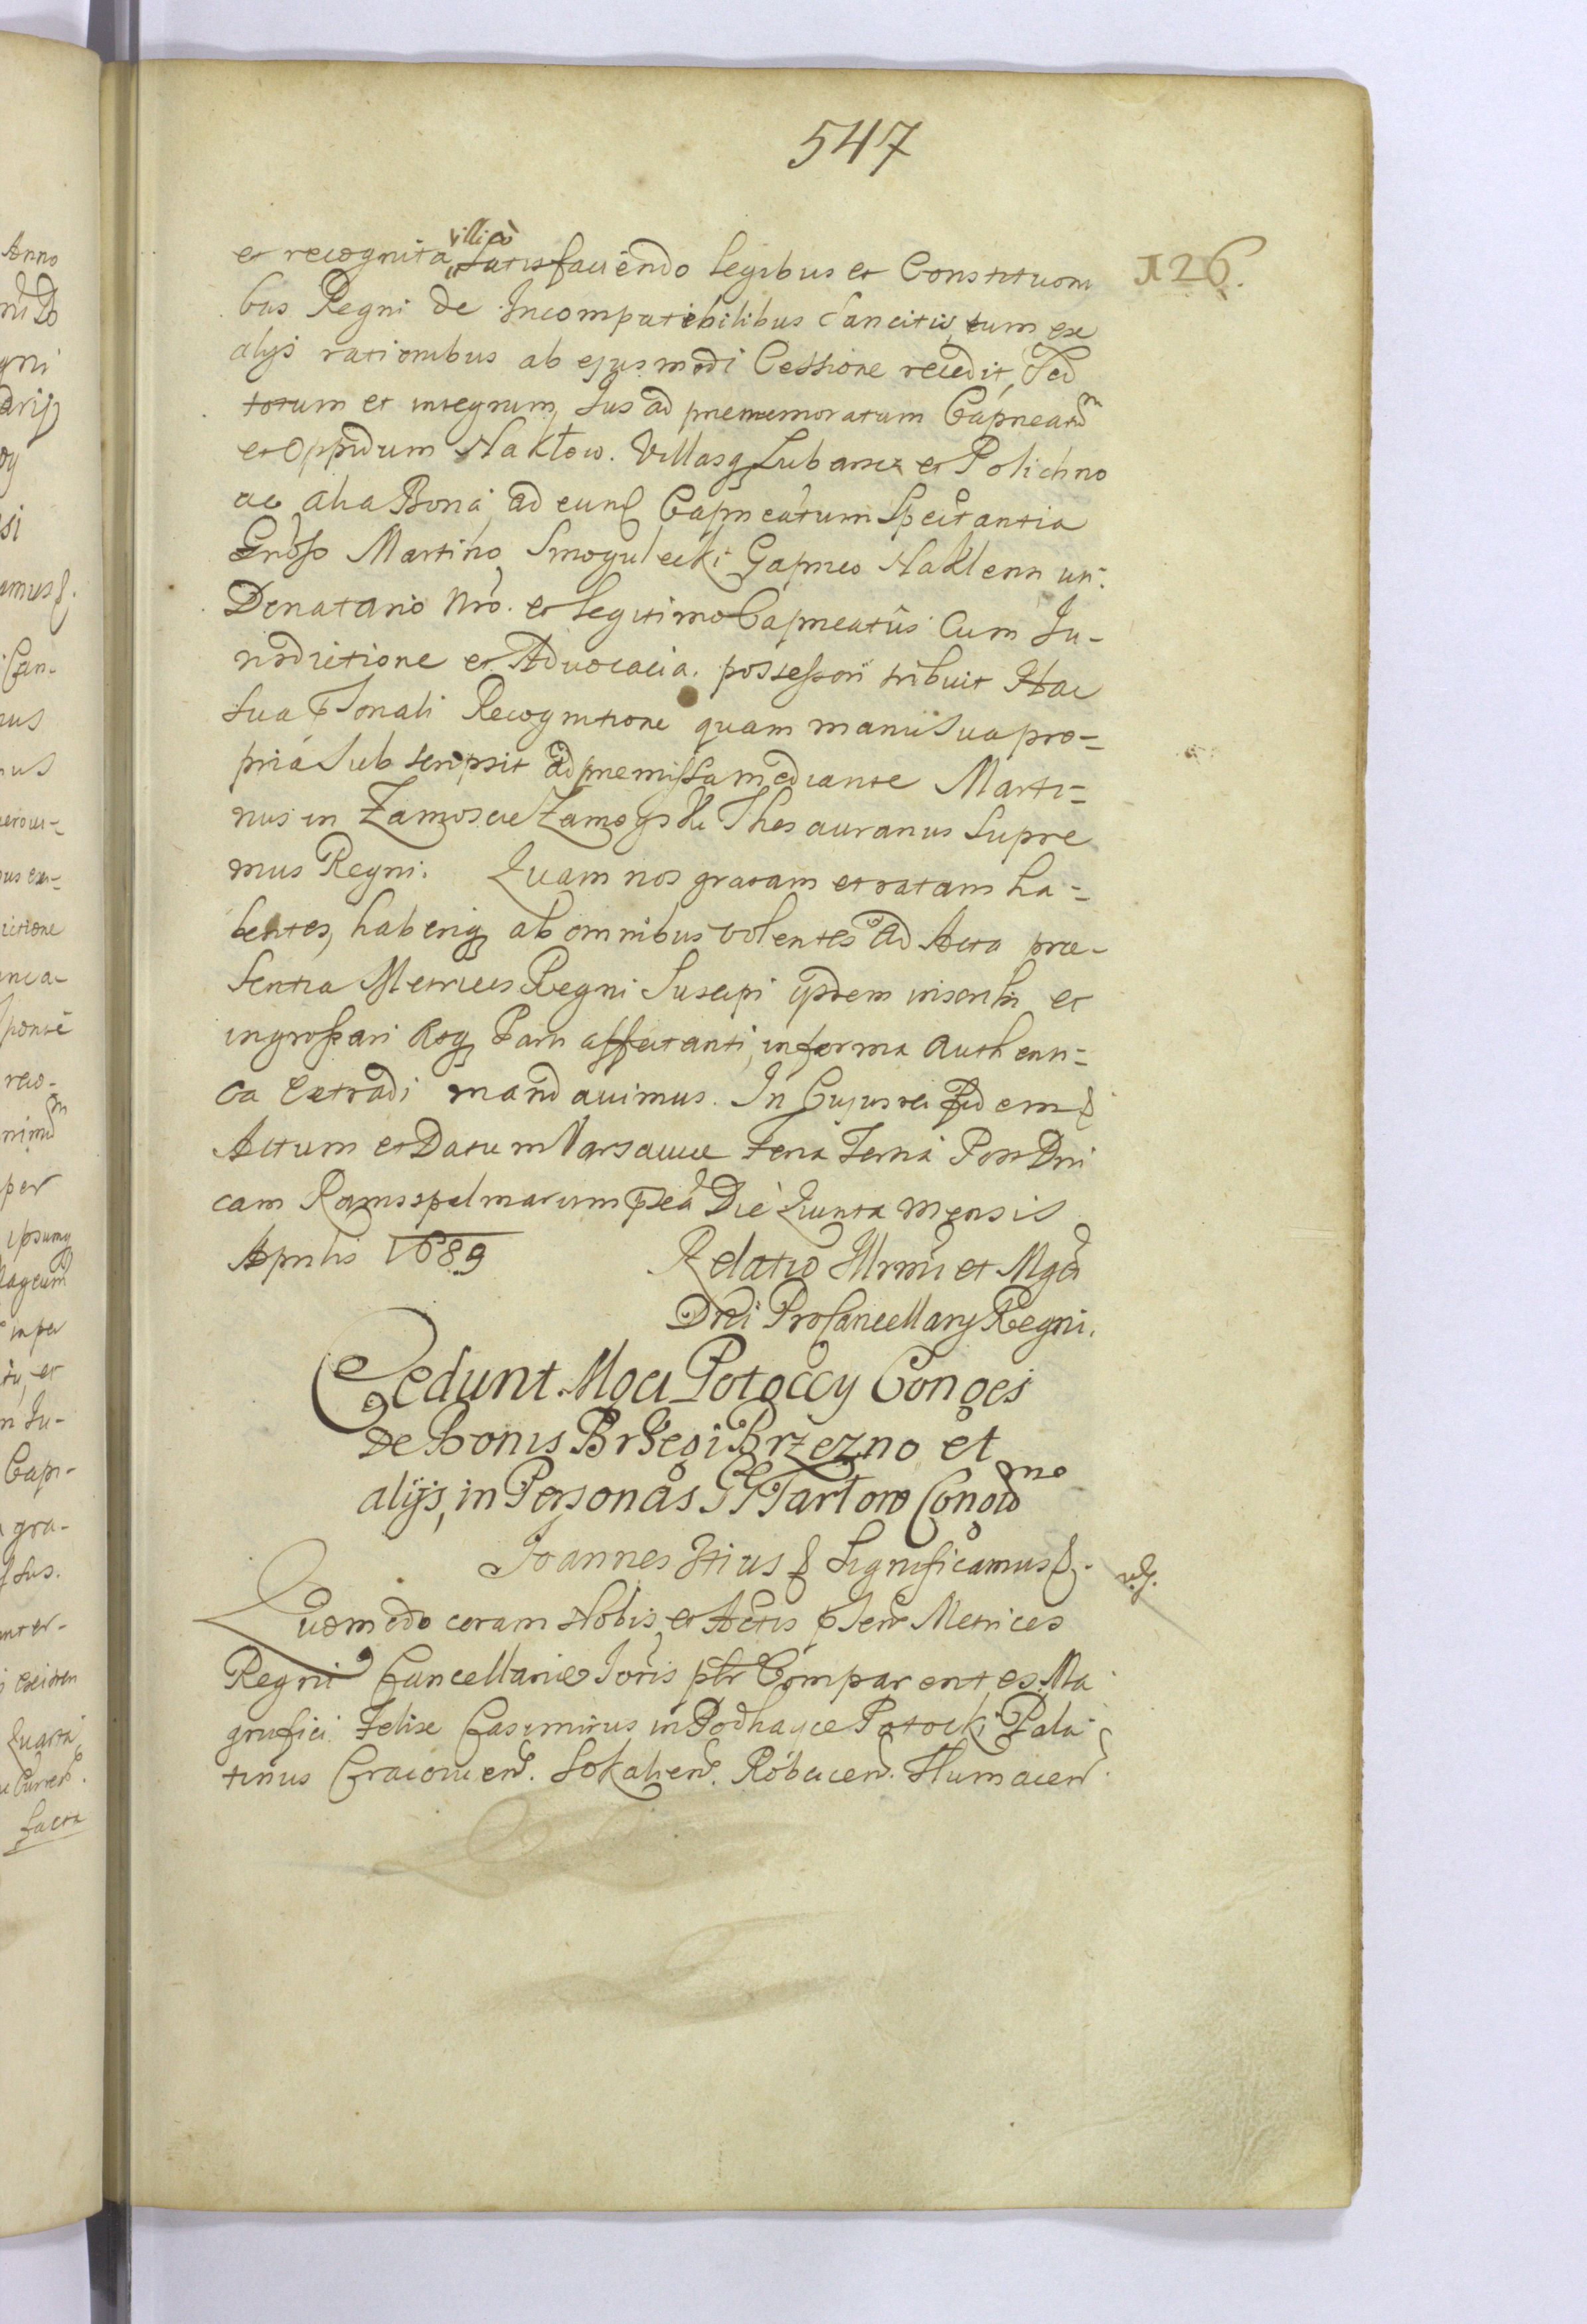 547
126.
villico
et recognita Satisfaciendo legibus et Constituoni
bus Regni de Incompatibilibus Sancitis, tum ex
alijs rationibus ab ejusmodi Cessione recedit, Sed
totum et integrum Jus ad prememoratum Capneatũ
et Oppidum Naktow. Villasq Lubarscz et Polichno
ac alia Bona, ad eund Capneatum Spectantia
Gnoso Martino Smogulecki Capneo Naklenn uti
Donatario Nro. et legitimo Capneatus Cum Ju-
risdictione et Advocacia. possessori tribuit Hac
Sua psonali Recognitione quam manu Sua pro-
pria Subscripsit ad premissa mediante Marti-
nus in Zamoscie Zamoyski Thesaurarius Supre
mus Regni. Quam nos gratam et ratam ha-
bentes, haberiq ab omnibus volentes ad Acta prae-
sentia Metrices Regni Suscipi ijsdem inscribi et
ingrossari Atq Parti affectanti, in forma Authenti-
ca Extradi mandavimus. In Cujus rei fidem &
Actum et Datum Varsaviae Feria Tertia Post Dni
cam Ramispalmarum pxã Die Quinta Mensis
Aprilis 1689
Relatio Illrmi et Mgci
Dni ProCancellarij Regni.
Cedunt Mgci Potoccy Conges
de Bonis Brzegi Brzezno et
alijs, in Personas GG Tarłow Congũ
Joannes 3tius & Significamus &.
Quomodo coram Nobis, et Actis psen Metrices
Regni Cancellariae Joris plr Comparentes Ma
gnifici Felix Casimirus in Podhayce Potocki Pala
tinus Cracovien. Sokalien. Robcicen. Humacien